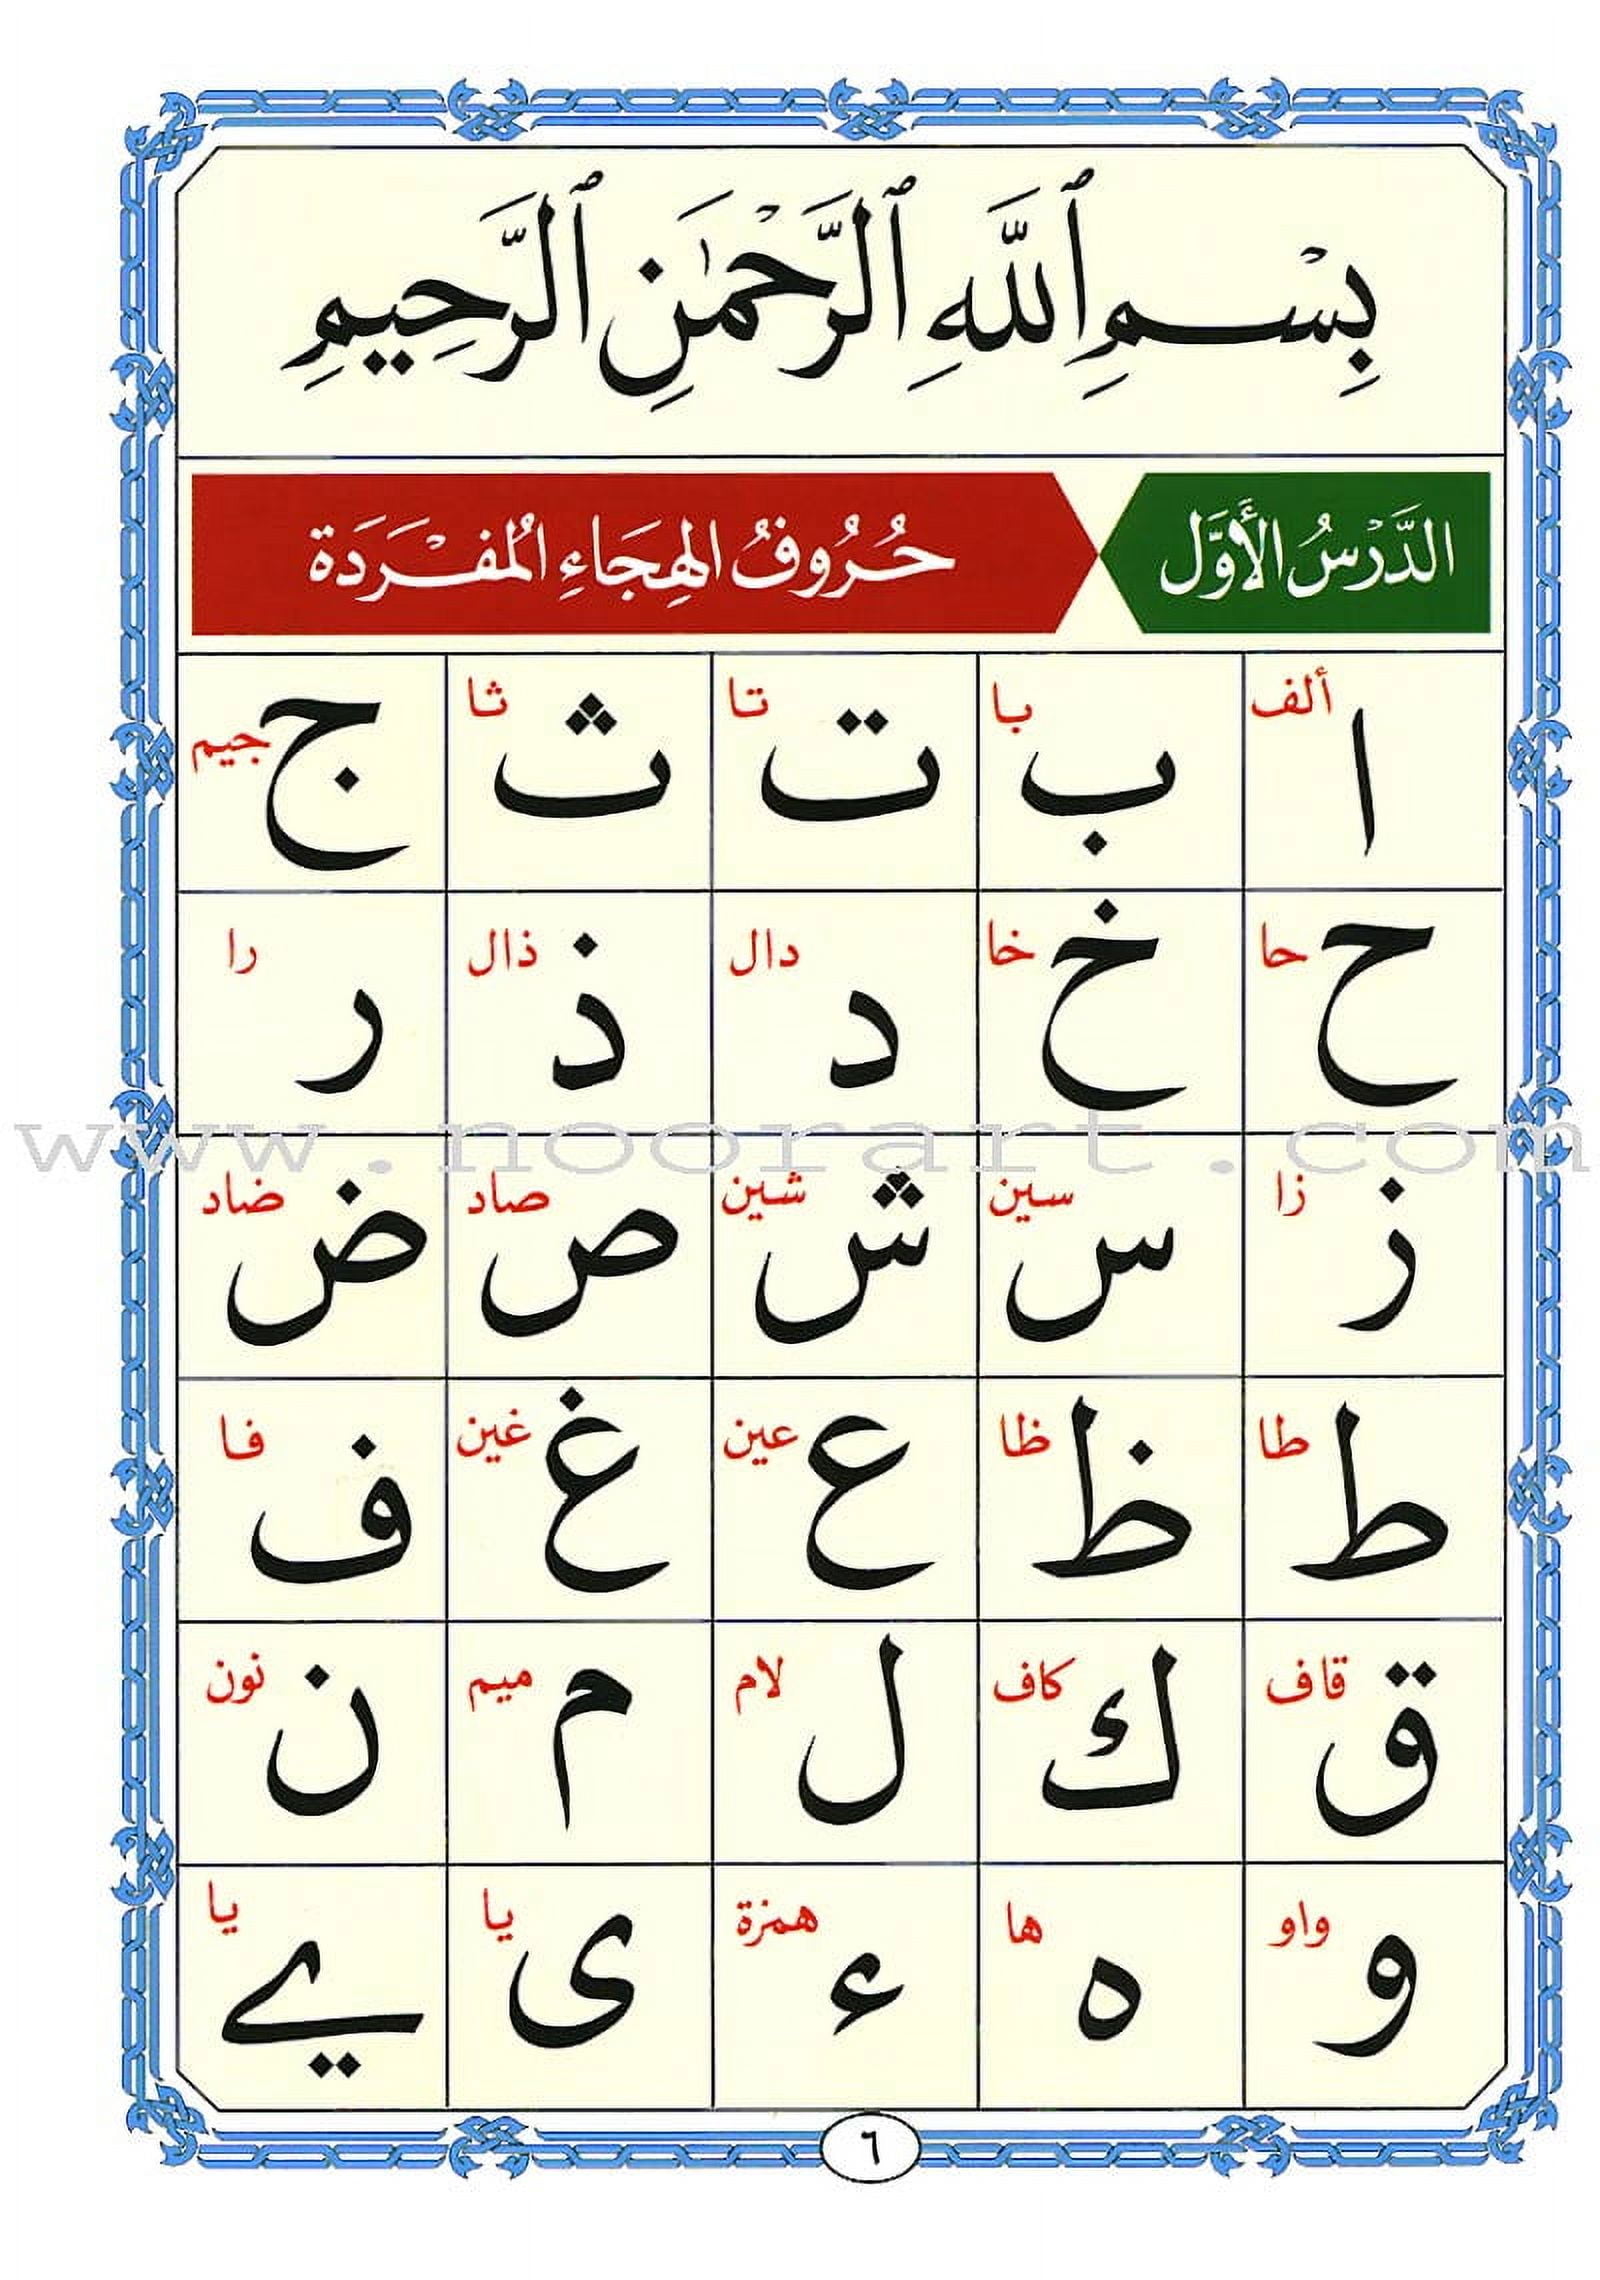 بِسْمِ ٱللَّهِ ٱلرَّحْمَٰنِ ٱلرَّحِيمِ
الدَّرْسُ الأَوَّل حُرُوفُ الهِجَاءِ المُفْرَدَة
ا ألف ب با ت تا ث ثا ج جيم
ح حا خ خا د دال ذ ذال ر را
www.noorart.com
ز زا س سين ش شين ص صاد ض ضاد
ط طا ظ ظا ع عين غ غين ف فا
ق قاف ك كاف ل لام م ميم ن نون
و واو ه ها ء همزة ى يا ے يا
٦